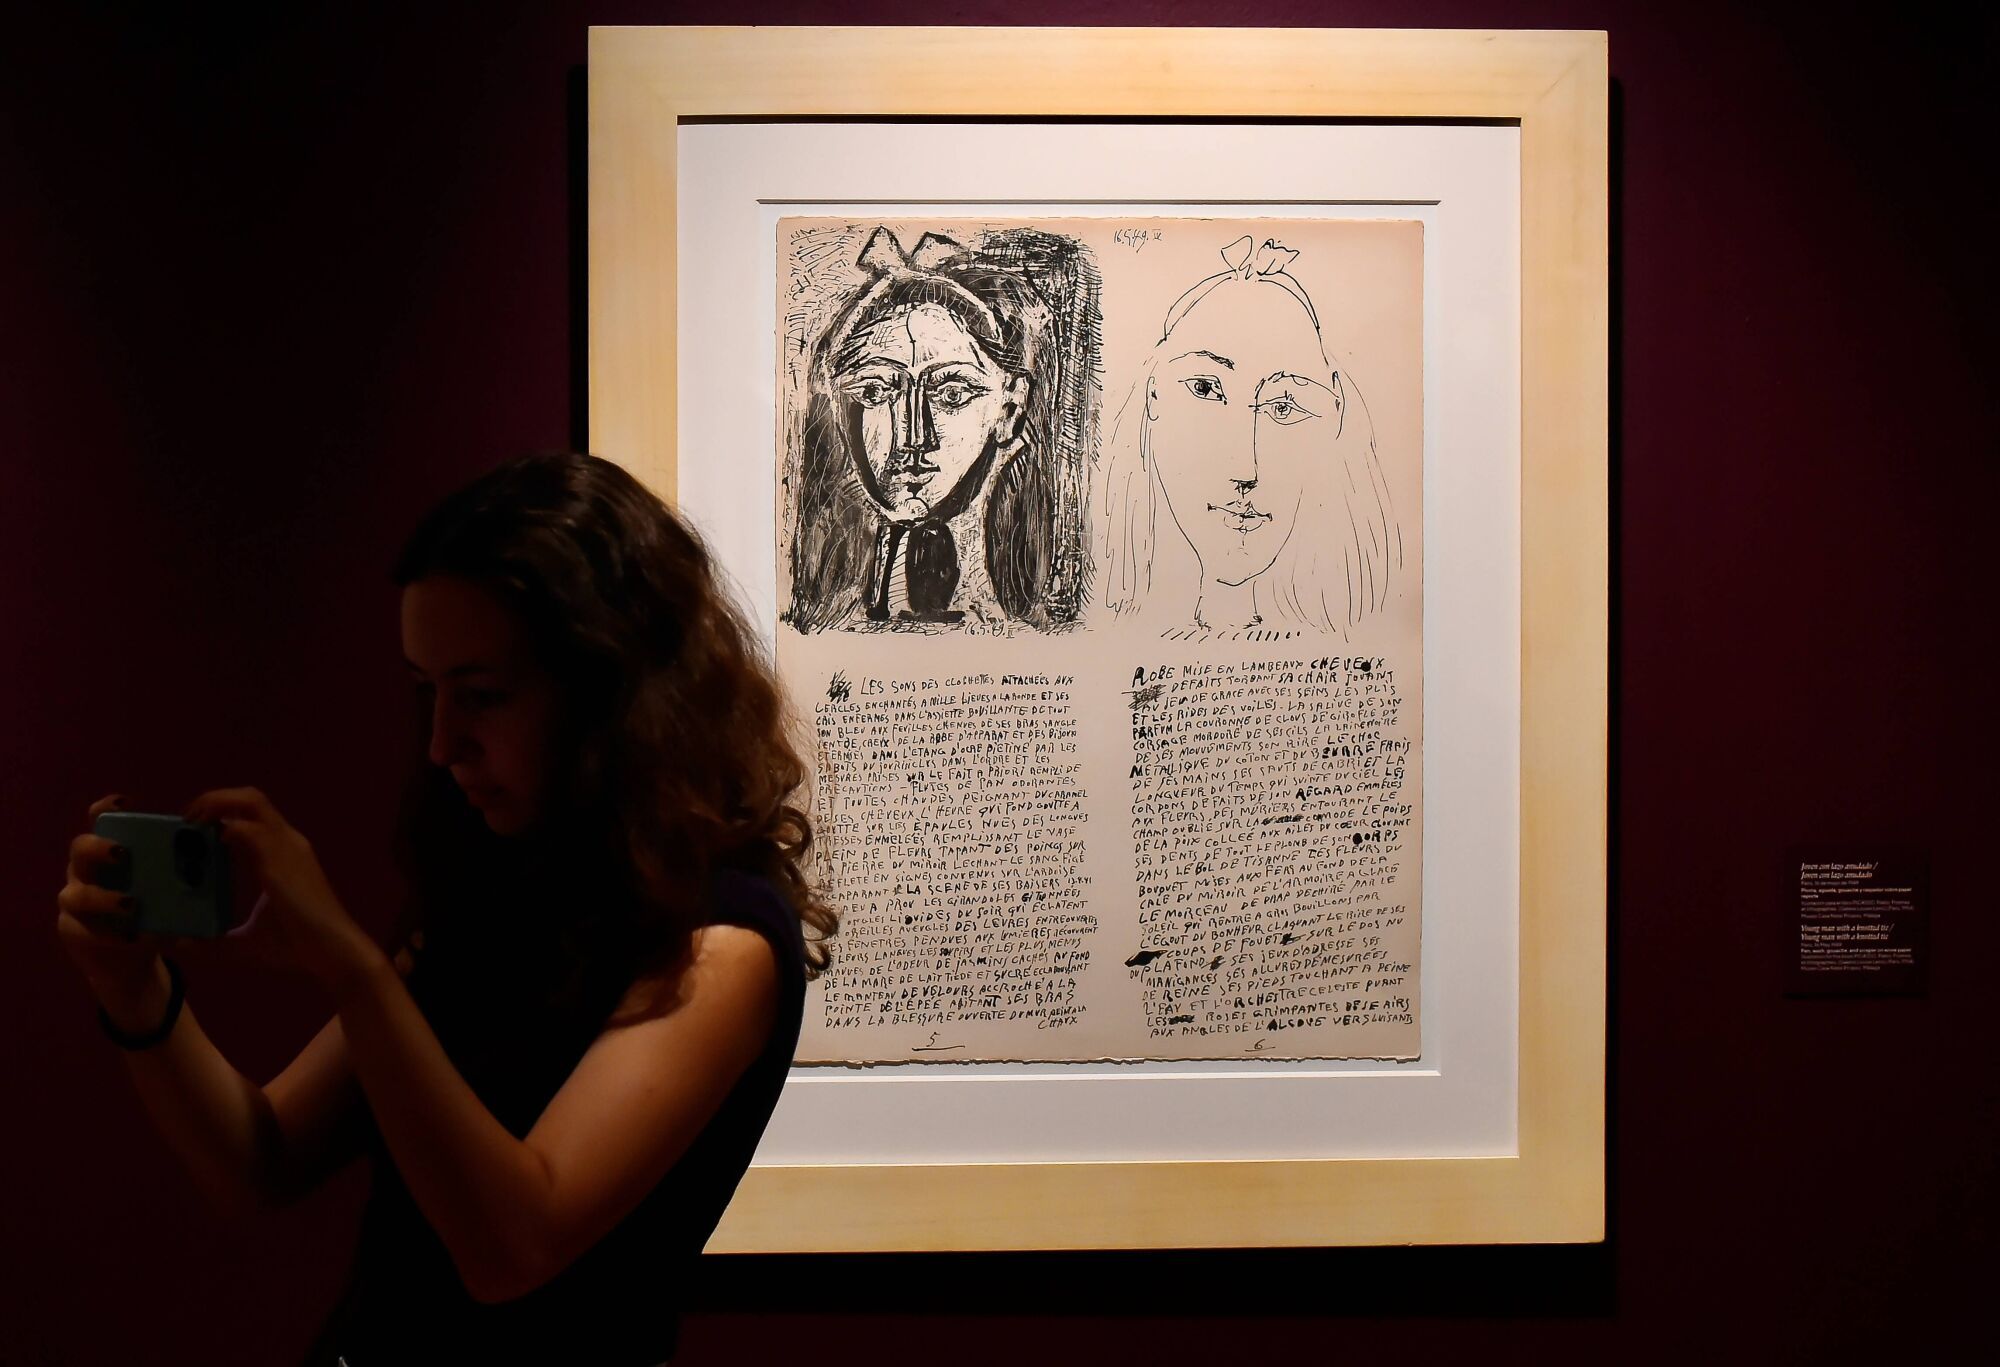 16.5.49. IV
16.5.49. II
LES SONS DES CLOCHETTES ATTACHÉES AUX
CERCLES ENCHANTÉS A MILLE LIEUES A LA RONDE ET SES
CRIS ENFERMÉS DANS L'ASSIETTE BOUILLANTE DE TOUT
SON BLEU AUX FEUILLES CHENUES DE SES BRAS SANGLE
VENTRE CREUX DE LA ROBE D'APPARAT ET DES BIJOUX
ETERNISÉS DANS L'ETANG D'OCRE PIETINÉ PAR LES
SABOTS DU JOUR INCLUS DANS L'ORDRE ET LES
MESURES PRISES SUR LE FAIT A PRIORI REMPLI DE
PRÉCAUTIONS - FLUTES DE PAN ODORANTES
ET TOUTES CHAUDES PEIGNANT DU CARAMEL
DE SES CHEVEUX L'HEURE QUI FOND GOUTTE A
GOUTTE SUR LES ÉPAULES NUES DES LONGUES
TRESSES EMMELÉES REMPLISSANT LE VASE
PLEIN DE FLEURS TAPANT DES POINGS SUR
LA PIERRE DU MIROIR LECHANT LE SANG FIGÉ
REFLETÉ EN SIGNES CONVENUS SUR L'ARDOISE
ACCAPARANT LA SCENE DE SES BAISERS
PEU A PROU LES GIRANDOLES
ONGLES LIQUIDES DU SOIR QUI ÉCLATENT
OREILLES AVEUGLES DES LEVRES ENTREOUVERTES
FENETRES PENDUES AUX LUMIERES RECOUVRENT
LEURS LANGUES LES SOUPIRS ET LES PLUS MENUS
MAUVES DE L'ODEUR DE JASMINS CACHÉS AU FOND
DE LA MARE DE LAIT TIEDE ET SUCRÉ ECLABOUSSANT
LE MANTEAU DE VELOURS ACCROCHÉ A LA
POINTE DE L'ÉPÉE ABITANT SES BRAS
DANS LA BLESSURE OUVERTE DU MUR PEINT A LA
CHAUX
5
ROBE MISE EN LAMBEAUX CHEVEUX
DEFAITS TORDANT SA CHAIR JOUANT
AU JEU DE GRACE AVEC SES SEINS LES PLIS
ET LES RIDES DES VOILES - LA SALIVE DE SON
PARFUM LA COURONNE DE CLOUS DE GIROFLE DU
CORSAGE MORDORÉ DE SES CILS LA LAINE NOIRE
DE SES MOUVEMENTS SON RIRE LE CHOC
METALLIQUE DU COTON ET DU BEURRE FRAIS
DE SES MAINS SES SAUTS DE CABRI ET LA
LONGUEUR DU TEMPS QUI SUINTE DU CIEL LES
CORDONS DEFAITS DE SON REGARD EMMELÉS
AUX FLEURS DES MURIERS ENTOURANT LE
CHAMP OUBLIÉ SUR LA COMODE LE POIDS
DE LA POIX COLLEÉ AUX AILES DU COEUR CLOUANT
SES DENTS DE TOUT LE PLOMB DE SON CORPS
DANS LE BOL DE TISANNE DES FLEURS DU
BOUQUET MISES AUX FERS AU FOND DE LA
CALE DU MIROIR DE L'ARMOIRE A GLACE
LE MORCEAU DE DRAP DECHIRÉ PAR LE
SOLEIL QUI RENTRE A GROS BOUILLONS PAR
L'EGOUT DU BONHEUR CLAQUANT LE RIRE DE SES
COUPS DE FOUET SUR LE DOS NU
DU PLAFOND SES JEUX D'ADRESSE SES
MANIGANCES SES ALLURES DEMESURÉES
DE REINE SES PIEDS TOUCHANT A PEINE
L'EAU ET L'ORCHESTRE CELESTE PUANT
LES ROSES GRIMPANTES DE SE AIRS
AUX ANGLES DE L'ALCOVE VERS LUISANTS
6
Joven con lazo anudado /
Joven con lazo anudado
París, 16 de mayo de 1949
Museo Casa Natal Picasso, Málaga
Young man with a knotted tie /
Young man with a knotted tie
Paris, 16 May 1949
Museo Casa Natal Picasso, Málaga